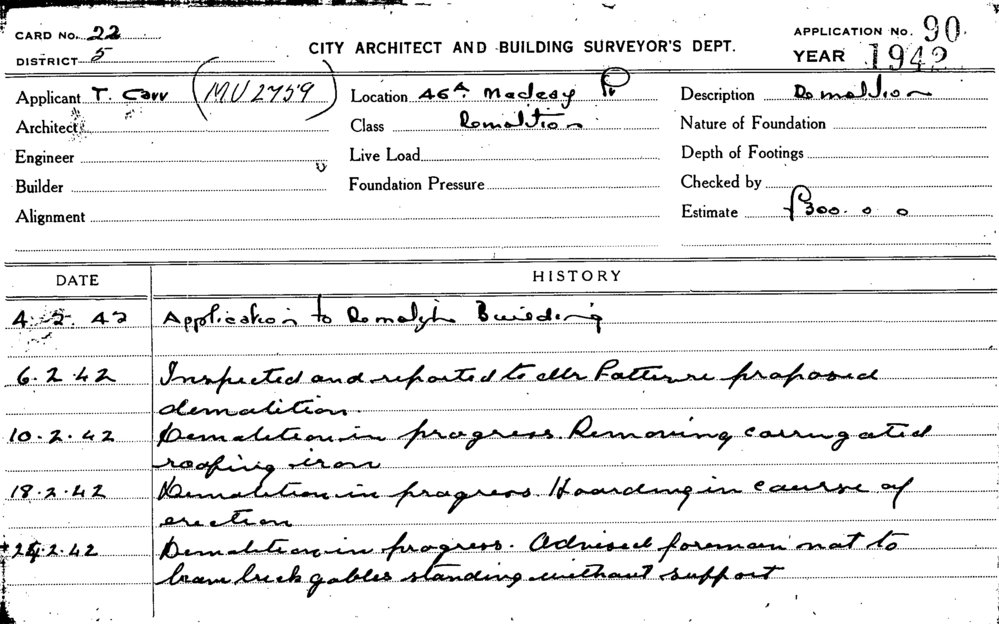 CARD No. 22
DISTRICT 5
CITY ARCHITECT AND BUILDING SURVEYOR'S DEPT.
APPLICATION No. 90
YEAR 1942
Applicant T. Carr (MU2759)
Location 46A. Macleay
Description Demolition
Architect
Class Demolition
Nature of Foundation
Engineer
Live Load
Depth of Footings
Builder
Foundation Pressure
Checked by
Alignment
Estimate £300. 0 0
DATE
HISTORY
4. 2. 42 Application to Demolish Building
6. 2. 42 Inspected and reported to Mr Patten re proposed
demolition.
10. 2. 42 Demolition in progress. Removing corrugated
roofing iron
18. 2. 42 Demolition in progress. Hoarding in course of
erection
24. 2. 42 Demolition in progress. Advised foreman not to
leave brick gables standing without support